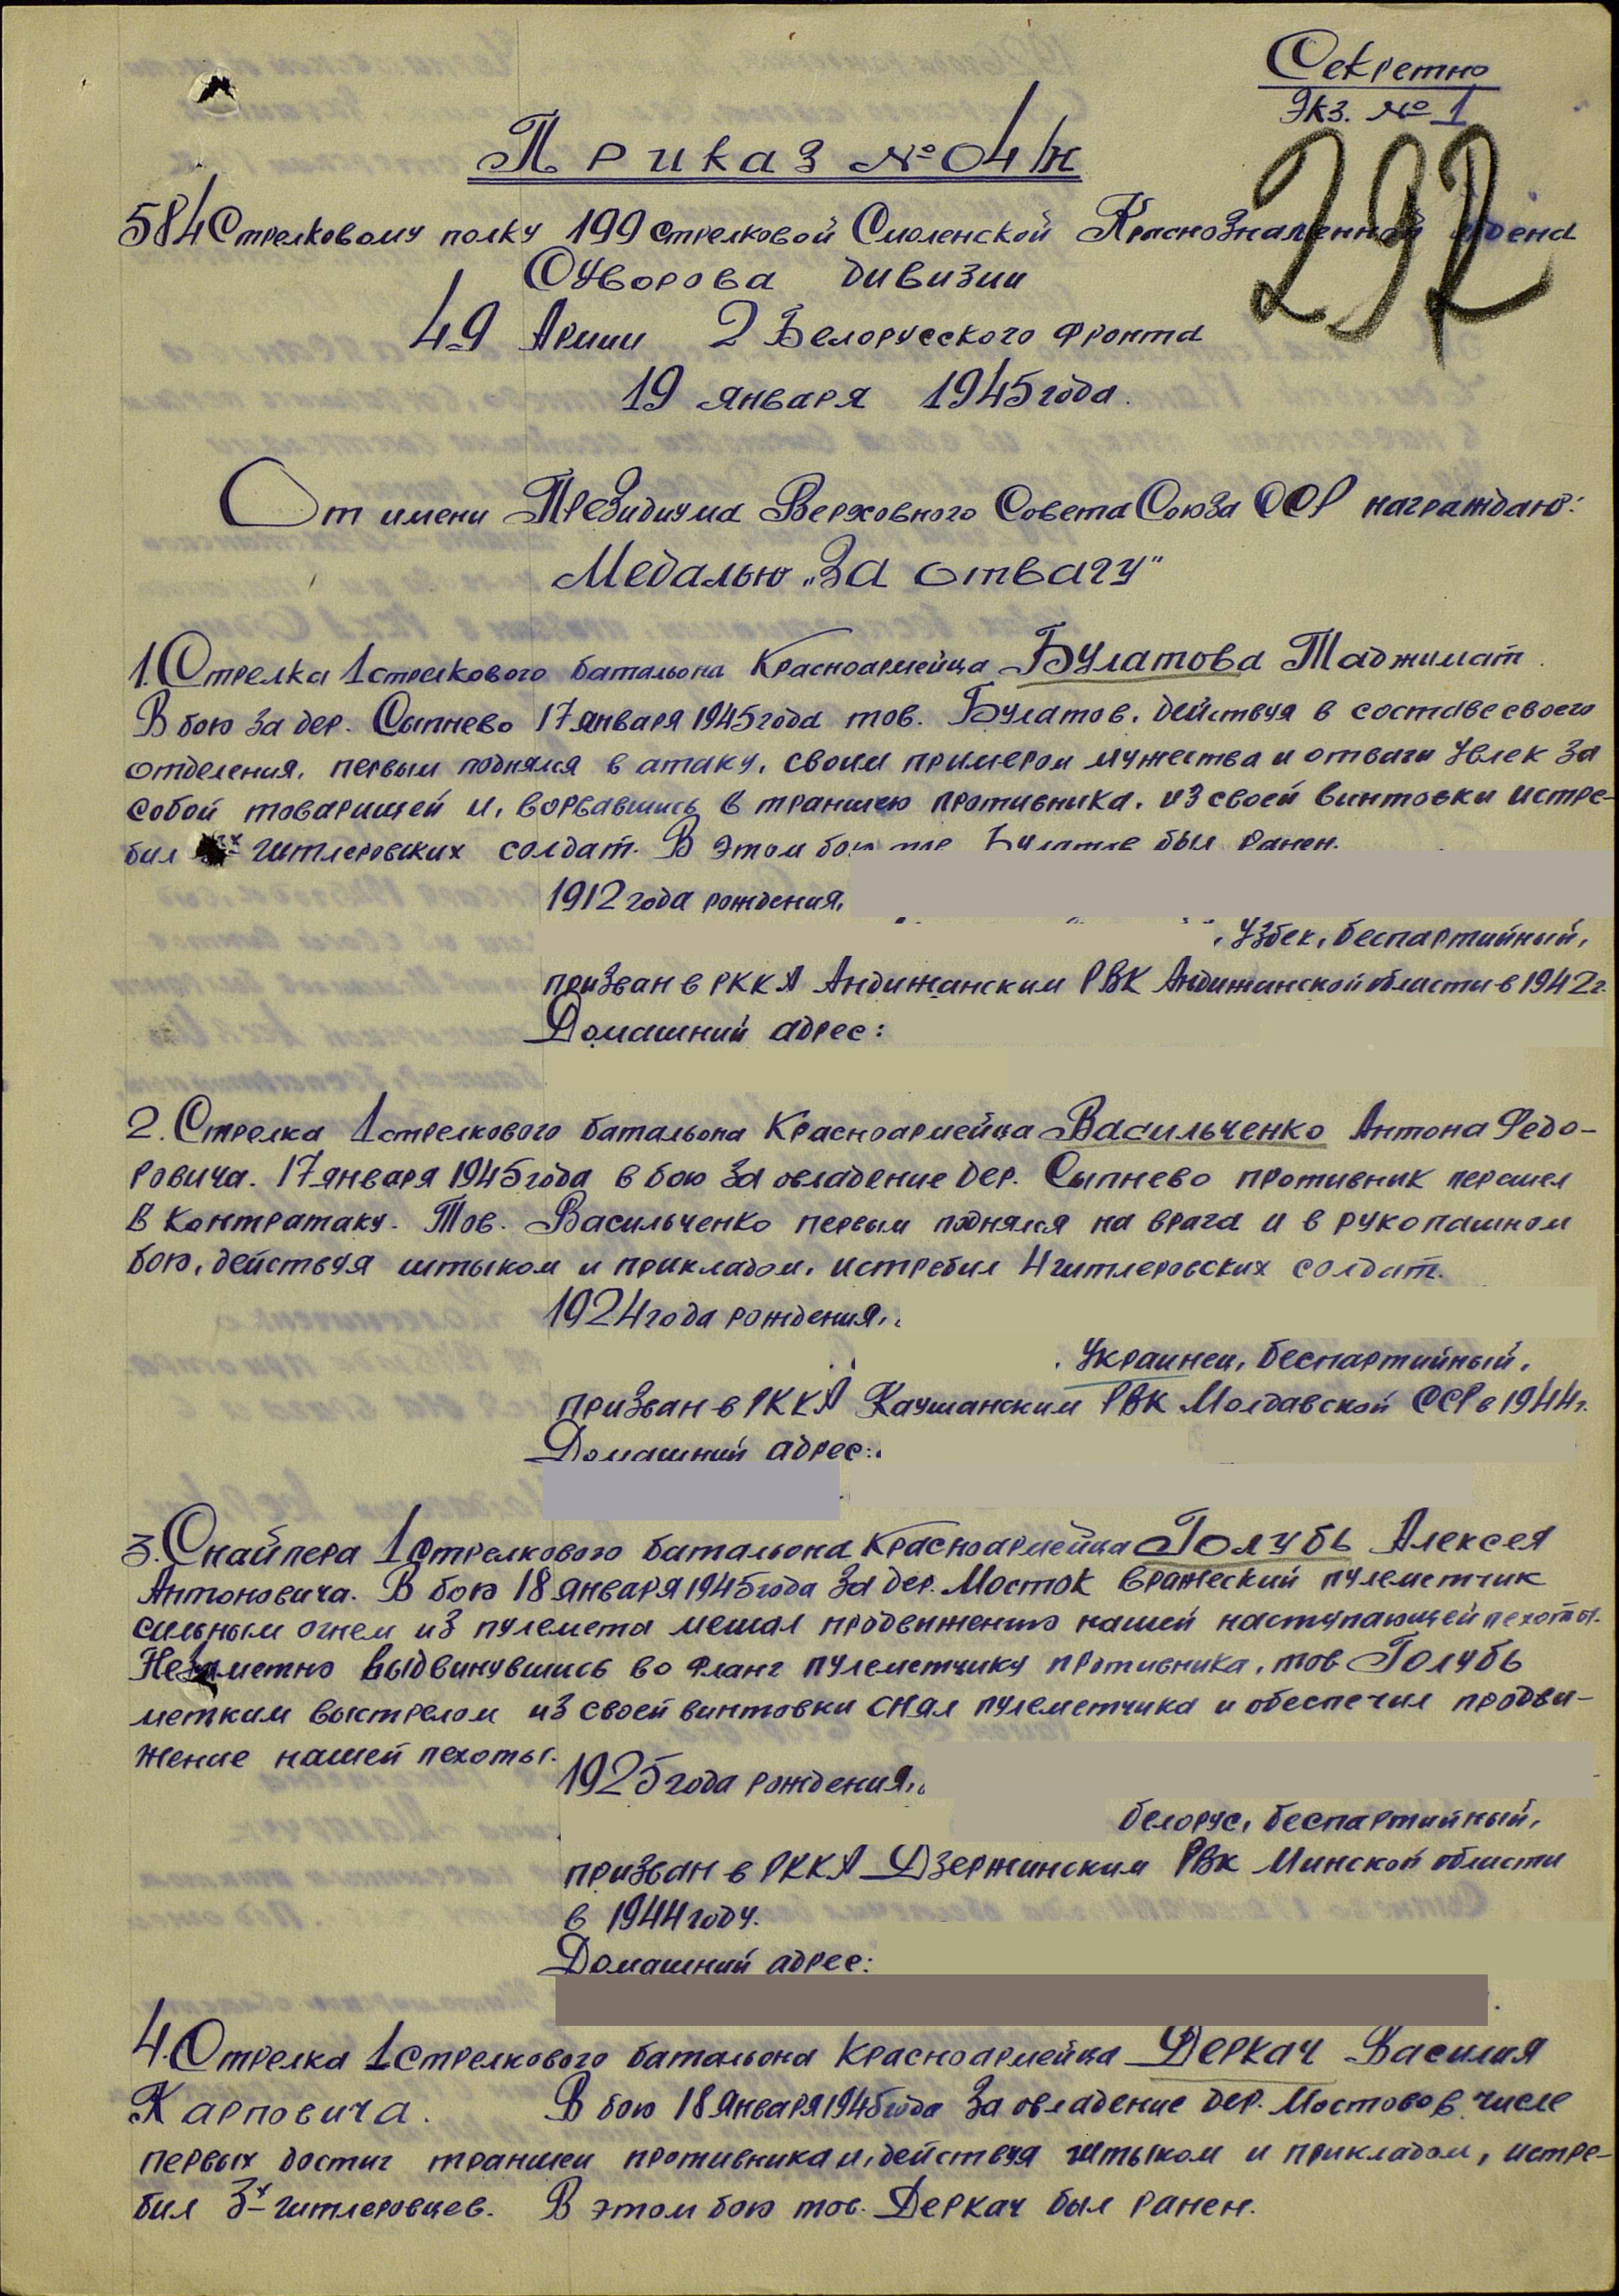 Секретно
Экз. № 1
292
Приказ № 04/н
584 Стрелковому полку 199 стрелковой Смоленской Краснознаменной ордена
Суворова дивизии
49 Армии 2 Белорусского фронта
19 января 1945 года.
От имени Президиума Верховного Совета Союза ССР награждаю:
Медалью „За отвагу"
1. Стрелка 1 стрелкового батальона Красноармейца Булатова Таджимат.
В бою за дер. Сыпнево 17 января 1945 года тов. Булатов, действуя в составе своего
отделения, первым поднялся в атаку, своим примером мужества и отваги увлек за
собой товарищей и, ворвавшись в траншею противника, из своей винтовки истре-
бил х гитлеровских солдат. В этом бою тов. Булатов был ранен.
1912 года рождения,
, узбек, беспартийный,
призван в РККА Андижанским РВК Андижанской области в 1942 г.
Домашний адрес:
2. Стрелка 1 стрелкового батальона Красноармейца Васильченко Антона Федо-
ровича. 17 января 1945 года в бою за овладение дер. Сыпнево противник перешел
в контратаку. Тов. Васильченко первым поднялся на врага и в рукопашном
бою, действуя штыком и прикладом, истребил 4 гитлеровских солдат.
1924 года рождения,
, украинец, беспартийный,
призван в РККА Каушанским РВК Молдавской ССР в 1944 г.
Домашний адрес:
3. Снайпера 1 стрелкового батальона Красноармейца Голубь Алексея
Антоновича. В бою 18 января 1945 года за дер. Мосток вражеский пулеметчик
сильным огнем из пулемета мешал продвижению нашей наступающей пехоты.
Незаметно выдвинувшись во фланг пулеметчику противника, тов Голубь
метким выстрелом из своей винтовки снял пулеметчика и обеспечил продви-
жение нашей пехоты.
1925 года рождения,
белорус, беспартийный,
призван в РККА Дзержинским РВК Минской области
в 1944 году.
Домашний адрес:
4. Стрелка 1 стрелкового батальона Красноармейца Деркач Василия
Карповича. В бою 18 января 1945 года за овладение дер. Мостово в числе
первых достиг траншеи противника и, действуя штыком и прикладом, истре-
бил 3х гитлеровцев. В этом бою тов. Деркач был ранен.